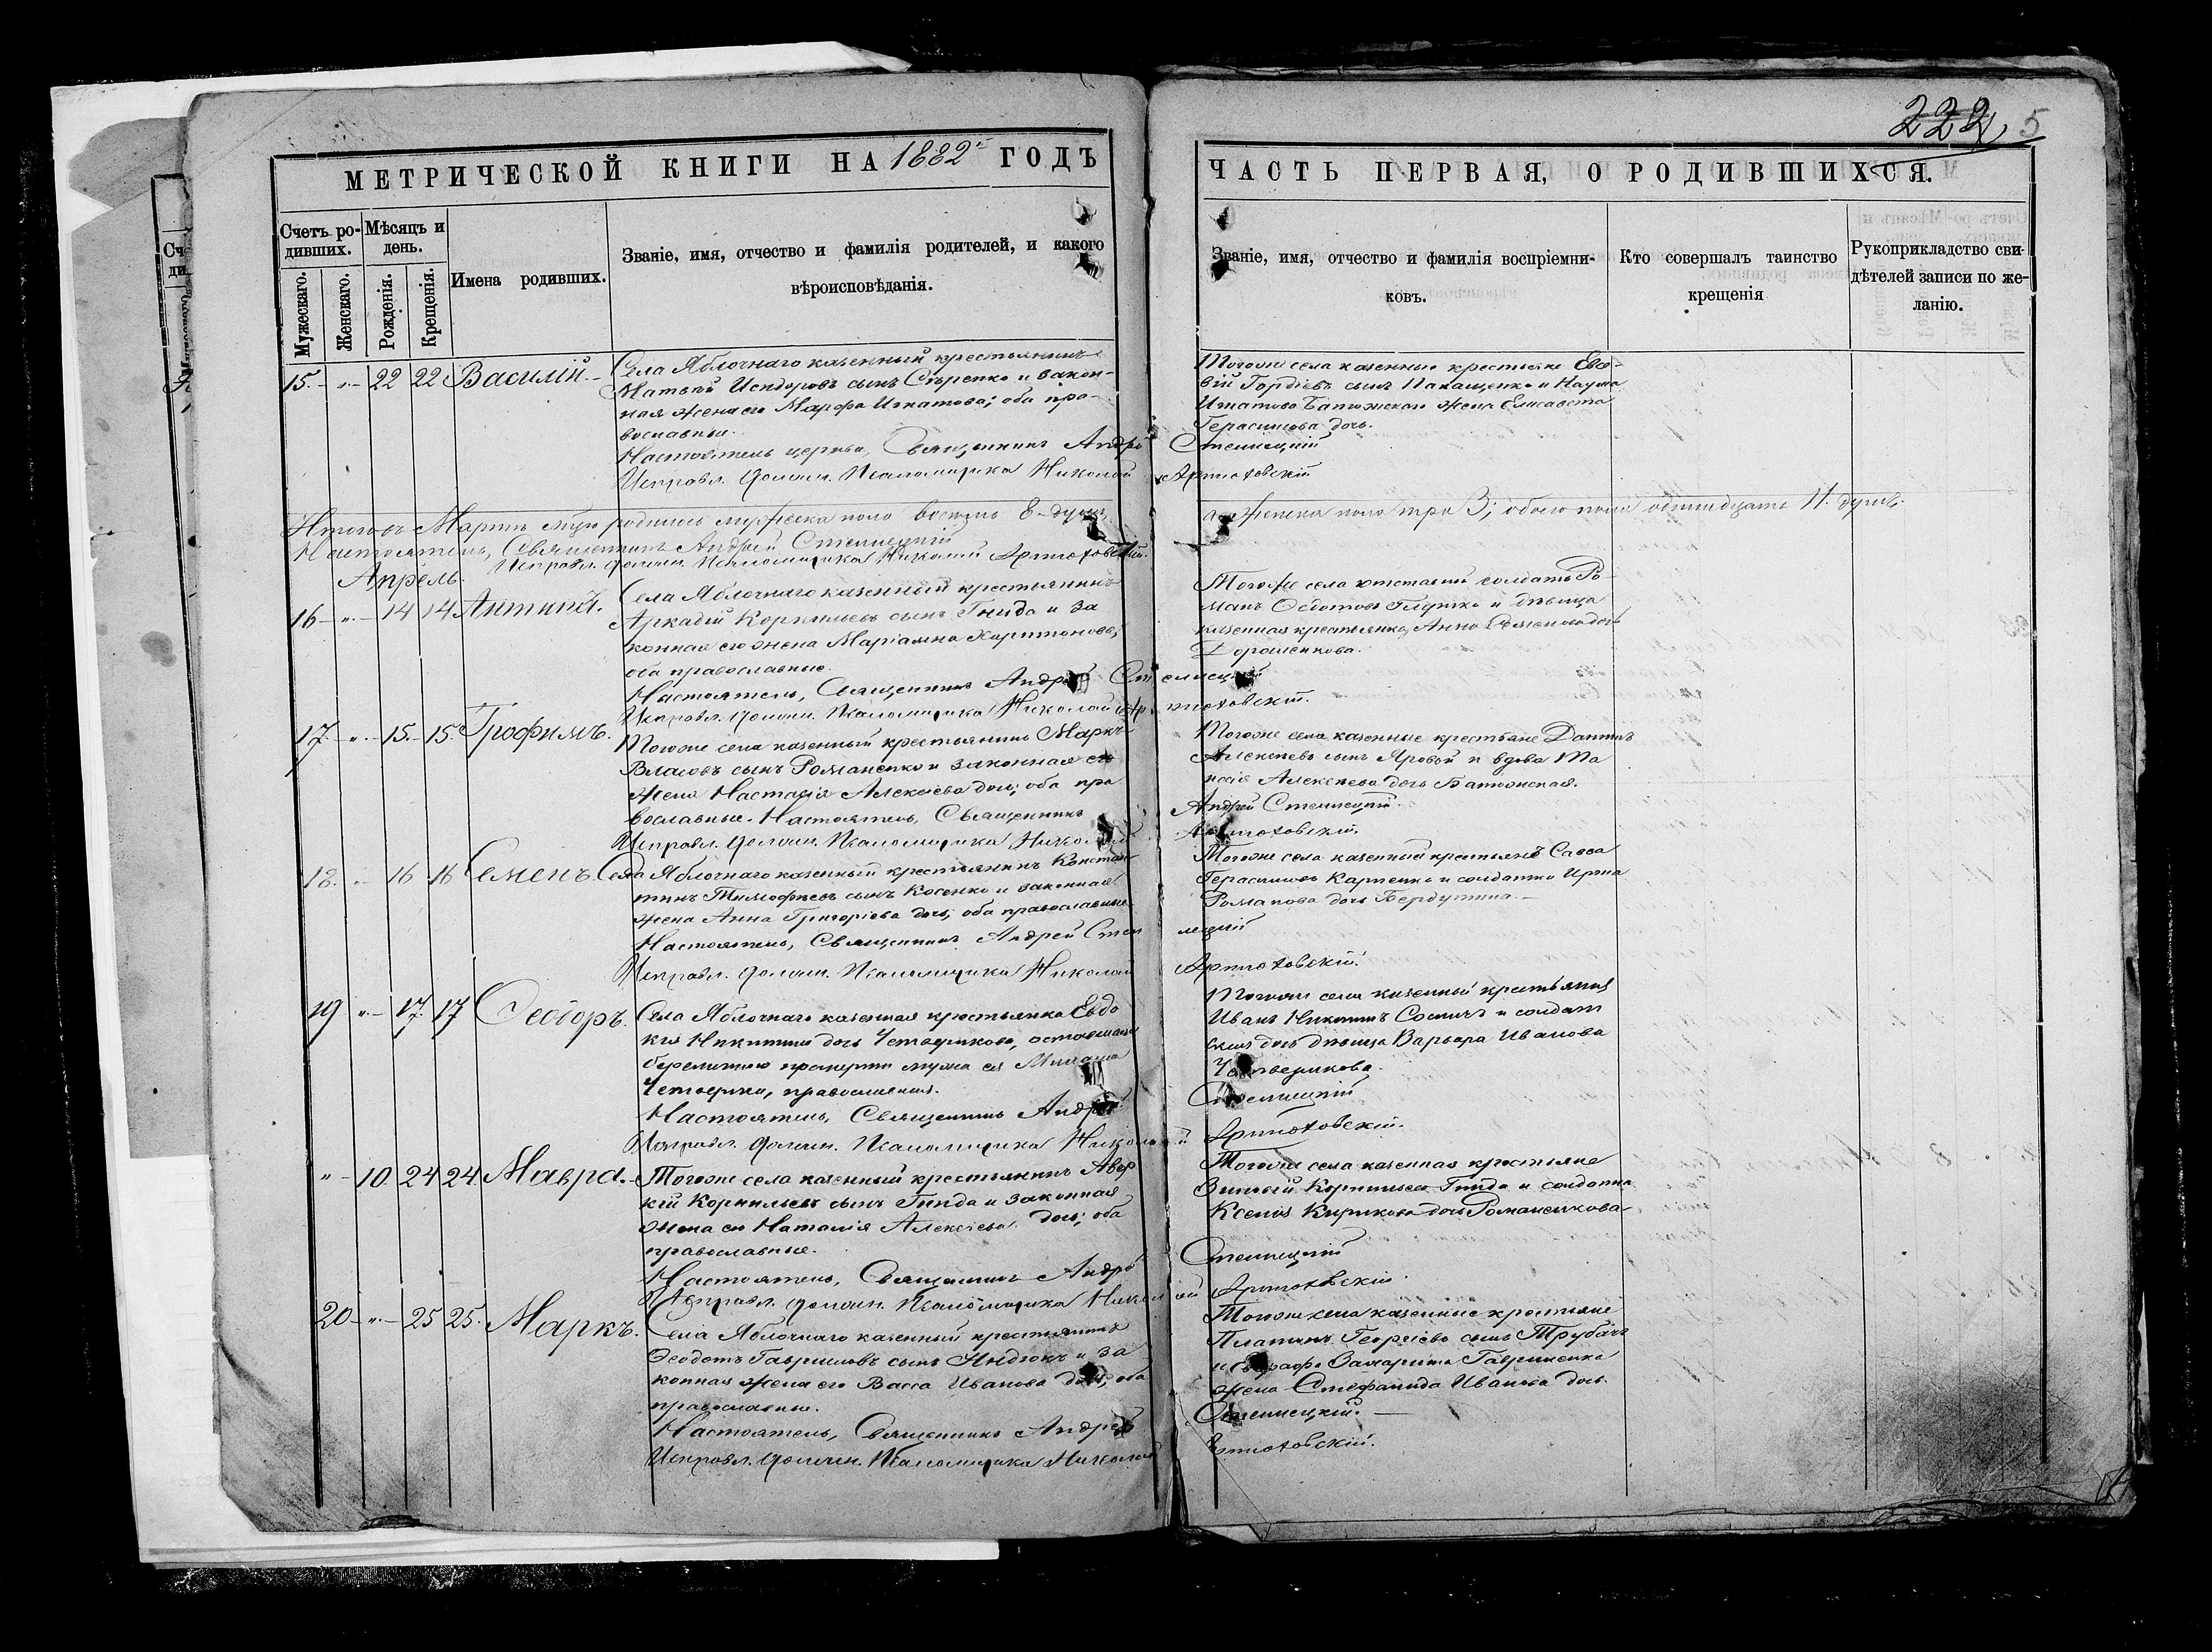 222, 5
МЕТРИЧЕСКОЙ КНИГИ НА 1882й ГОДЪ
ЧАСТЬ ПЕРВАЯ, О РОДИВШИХСЯ.
Счетъ ро-
дившихъ.
Мѣсяцъ и
день.
Мужескаго.
Женскаго.
Рожденія.
Крещенія.
Имена родившихъ.
Званіе, имя, отчество и фамилія родителей, и какого
вѣроисповѣданія.
Званіе, имя, отчество и фамилія воспріемни-
ковъ.
Кто совершалъ таинство
крещенія
Рукоприкладство сви-
дѣтелей записи по же-
ланію.
15. - „ - 22 22 Василій. -
Села Яблочнаго казенный крестьянинъ
Матвѣй Исидоровъ сынъ Сѣренко и закон-
ная жена его Марфа Игнатова; оба пра-
вославные.
Настоятель церкви, Священникъ Андрей Стеллецкій
Исправл. должн. Псаломщика Николай Артюховскій
Тогоже села казенные крестьяне
Гордіевъ сынъ и Наума
Игнатова жена Елисавета
Герасимова дочь.
Итого въ Мартѣ мцѣ родилось мужеска пола восемь 8 - душъ,
а женска пола три 3; обоего пола одиннадцать 11. душъ.
Настоятель, Священникъ Андрей Стеллецкій
Исправл. должн. Псаломщика Николай Артюховскій.
Апрѣль.
16 - „ - 14 14 Антипъ.
Села Яблочнаго казенный крестьянинъ
Аркадій Корнильевъ сынъ Гнида и за
конная его жена Маріамна Харитонова;
оба православные.
Настоятель, Священникъ Андрей Стеллецкій
Исправл. должн. Псаломщика Николай Артюховскій.
Тогоже села отставный солдатъ Ро-
манъ Ѳедотовъ и дѣвица
казенная крестьянка Анна Семенова дочь
Дорошенкова.
17. - „ - 15. - 15. Трофимъ.
Тогоже села казенный крестьянинъ Маркъ
Власовъ сынъ Романенко и законная его
жена Настасія Алексѣева дочь; оба пра
вославные. Настоятель, Священникъ Андрей Стеллецкій
Исправл. должн. Псаломщика Николай Артюховскій.
Тогоже села казенные крестьяне
Алексѣевъ сынъ Яровой и вдова Та
исія Алексѣева дочь
18. „ - 16 16 Семенъ.
Села Яблочнаго казенный крестьянинъ Констан
тинъ Тимофеевъ сынъ Косенко и законная
жена Анна Григоріева дочь; оба православные
Настоятель, Священникъ Андрей Стеллецкій
Исправл. должн. Псаломщика Николай Артюховскій.
Тогоже села казенный крестьянъ Савва
Герасимовъ Карпенко и солдатка Ирина
Романова дочь
19 „ - 17. 17 Ѳеодоръ.
Села Яблочнаго казенная крестьянка Евдо
кія Никитина дочь Четверикова, оставшаяся
беременною мужа ея
Четверика, православная.
Настоятель, Священникъ Андрей Стеллецкій
Исправл. должн. Псаломщика Николай Артюховскій.
Тогоже села казенный крестьянинъ
Иванъ Никитинъ и солдат
ская дочь дѣвица Варвара Иванова
Четверикова.
„ - 10. 24 24 Мавра. -
Тогоже села казенный крестьянинъ Авер
кій Корнильевъ сынъ Гнида и законная
жена его Наталія Алексѣева дочь; оба
православные.
Настоятель, Священникъ Андрей Стеллецкій
Исправл. должн. Псаломщика Николай Артюховскій.
Тогоже села казенная крестьяне
Зиновій Корнильевъ Гнида и солдатка
Ксенія Кирикова дочь Романенкова
20 - „ - 25 25. Маркъ.
Села Яблочнаго казенный крестьянинъ
Ѳеодотъ Гавриловъ сынъ Индюкъ и за
конная жена его Васса Иванова дочь; оба
православные.
Настоятель, Священникъ Андрей Стеллецкій. -
Исправл. должн. Псаломщика Николай Артюховскій.
Тогоже села казенные крестьяне
Платонъ Георгіевъ сынъ Трубачъ
и
жена Стефанида Иванова дочь.